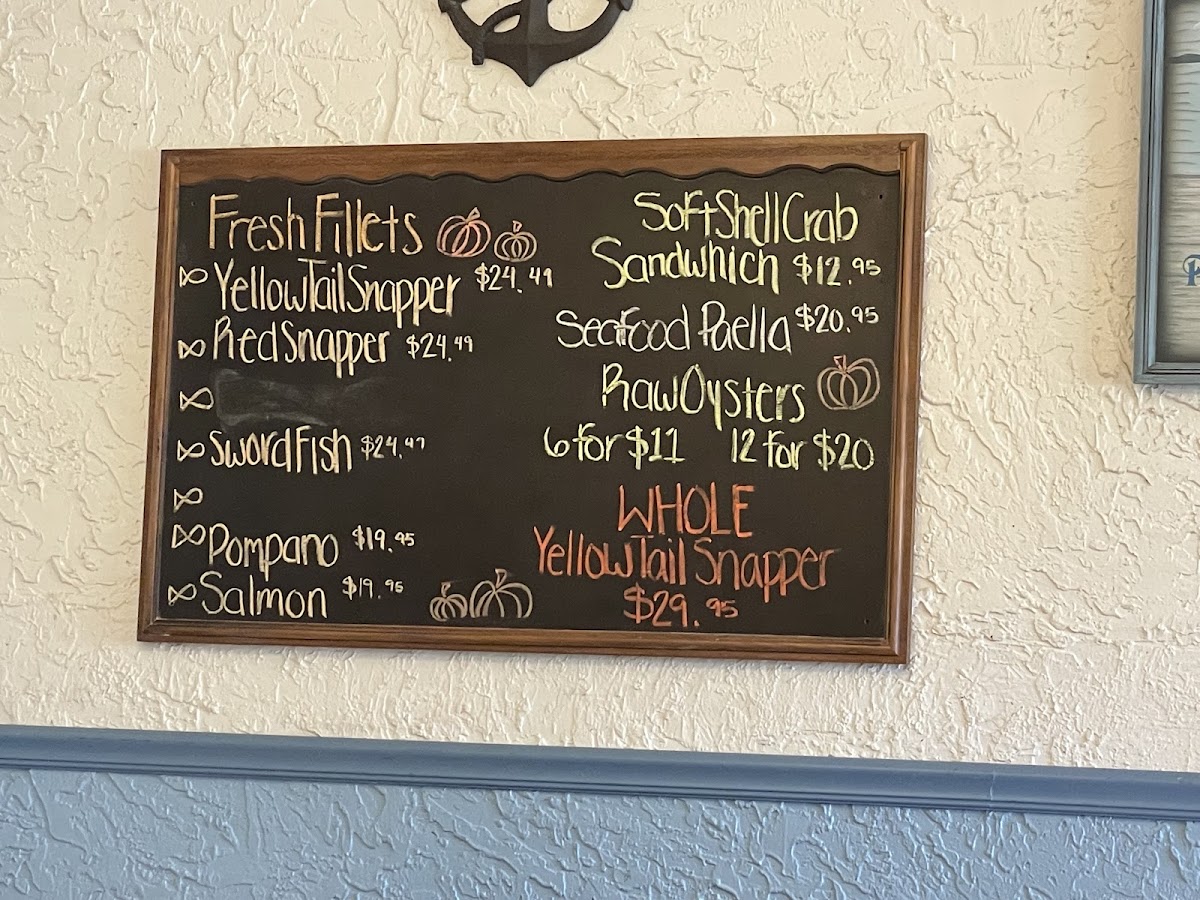 Fresh Fillets
YellowTail Snapper $24.49
Red Snapper $24.49
SwordFish $24.49
Pompano $19.95
Salmon $19.95
Soft Shell Crab
Sandwhich $12.95
Seafood Paella $20.95
Raw Oysters
6 for $11 12 for $20
WHOLE
YellowTail Snapper
$29.95